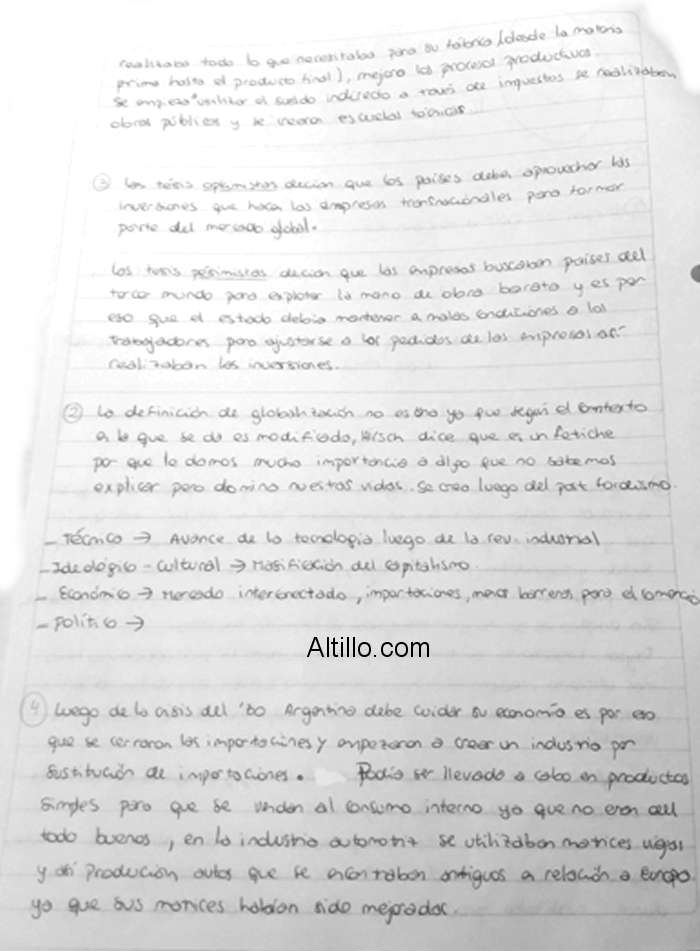 realizaba todo lo que necesitaba para su fábrica (desde la materia
prima hasta el producto final), mejora los procesos productivos.
Se empieza utilizar el sueldo indirecto a través de impuestos se realizaban
obras públicas y se crearon escuelas técnicas.
③ Las tesis optimistas decían que los países deben aprovechar las
inversiones que hacen las empresas transnacionales para formar
parte del mercado global.
Los tesis pesimistas decían que las empresas buscaban países del
tercer mundo para explotar la mano de obra barata y es por
eso que el estado debía mantener a malas condiciones a los
trabajadores para ajustarse a los pedidos de las empresas así
realizaban las inversiones.
② La definición de globalización no es una ya que según el contexto
en lo que se da es modificado, Hirsch dice que es un fetiche
por que le damos mucha importancia a algo que no sabemos
explicar pero domina nuestras vidas. Se crea luego del post fordismo.
- Técnico → Avance de la tecnología luego de la rev. industrial
- Ideológico - Cultural → Masificación del capitalismo.
- Económico → Mercado interconectado, importaciones, menos barreras para el comercio
- Político →
Altillo.com
④ Luego de la crisis del '30 Argentina debe cuidar su economía es por eso
que se cerraron las importaciones y empezaron a crear un industria por
sustitución de importaciones. Podía ser llevado a cabo en productos
simples para que se vendan al consumo interno ya que no eran del
todo buenos, en la industria automotriz se utilizaban matrices viejas
y así producían autos que se encontraban antiguos a relación a Europa
ya que sus matrices habían sido mejoradas.